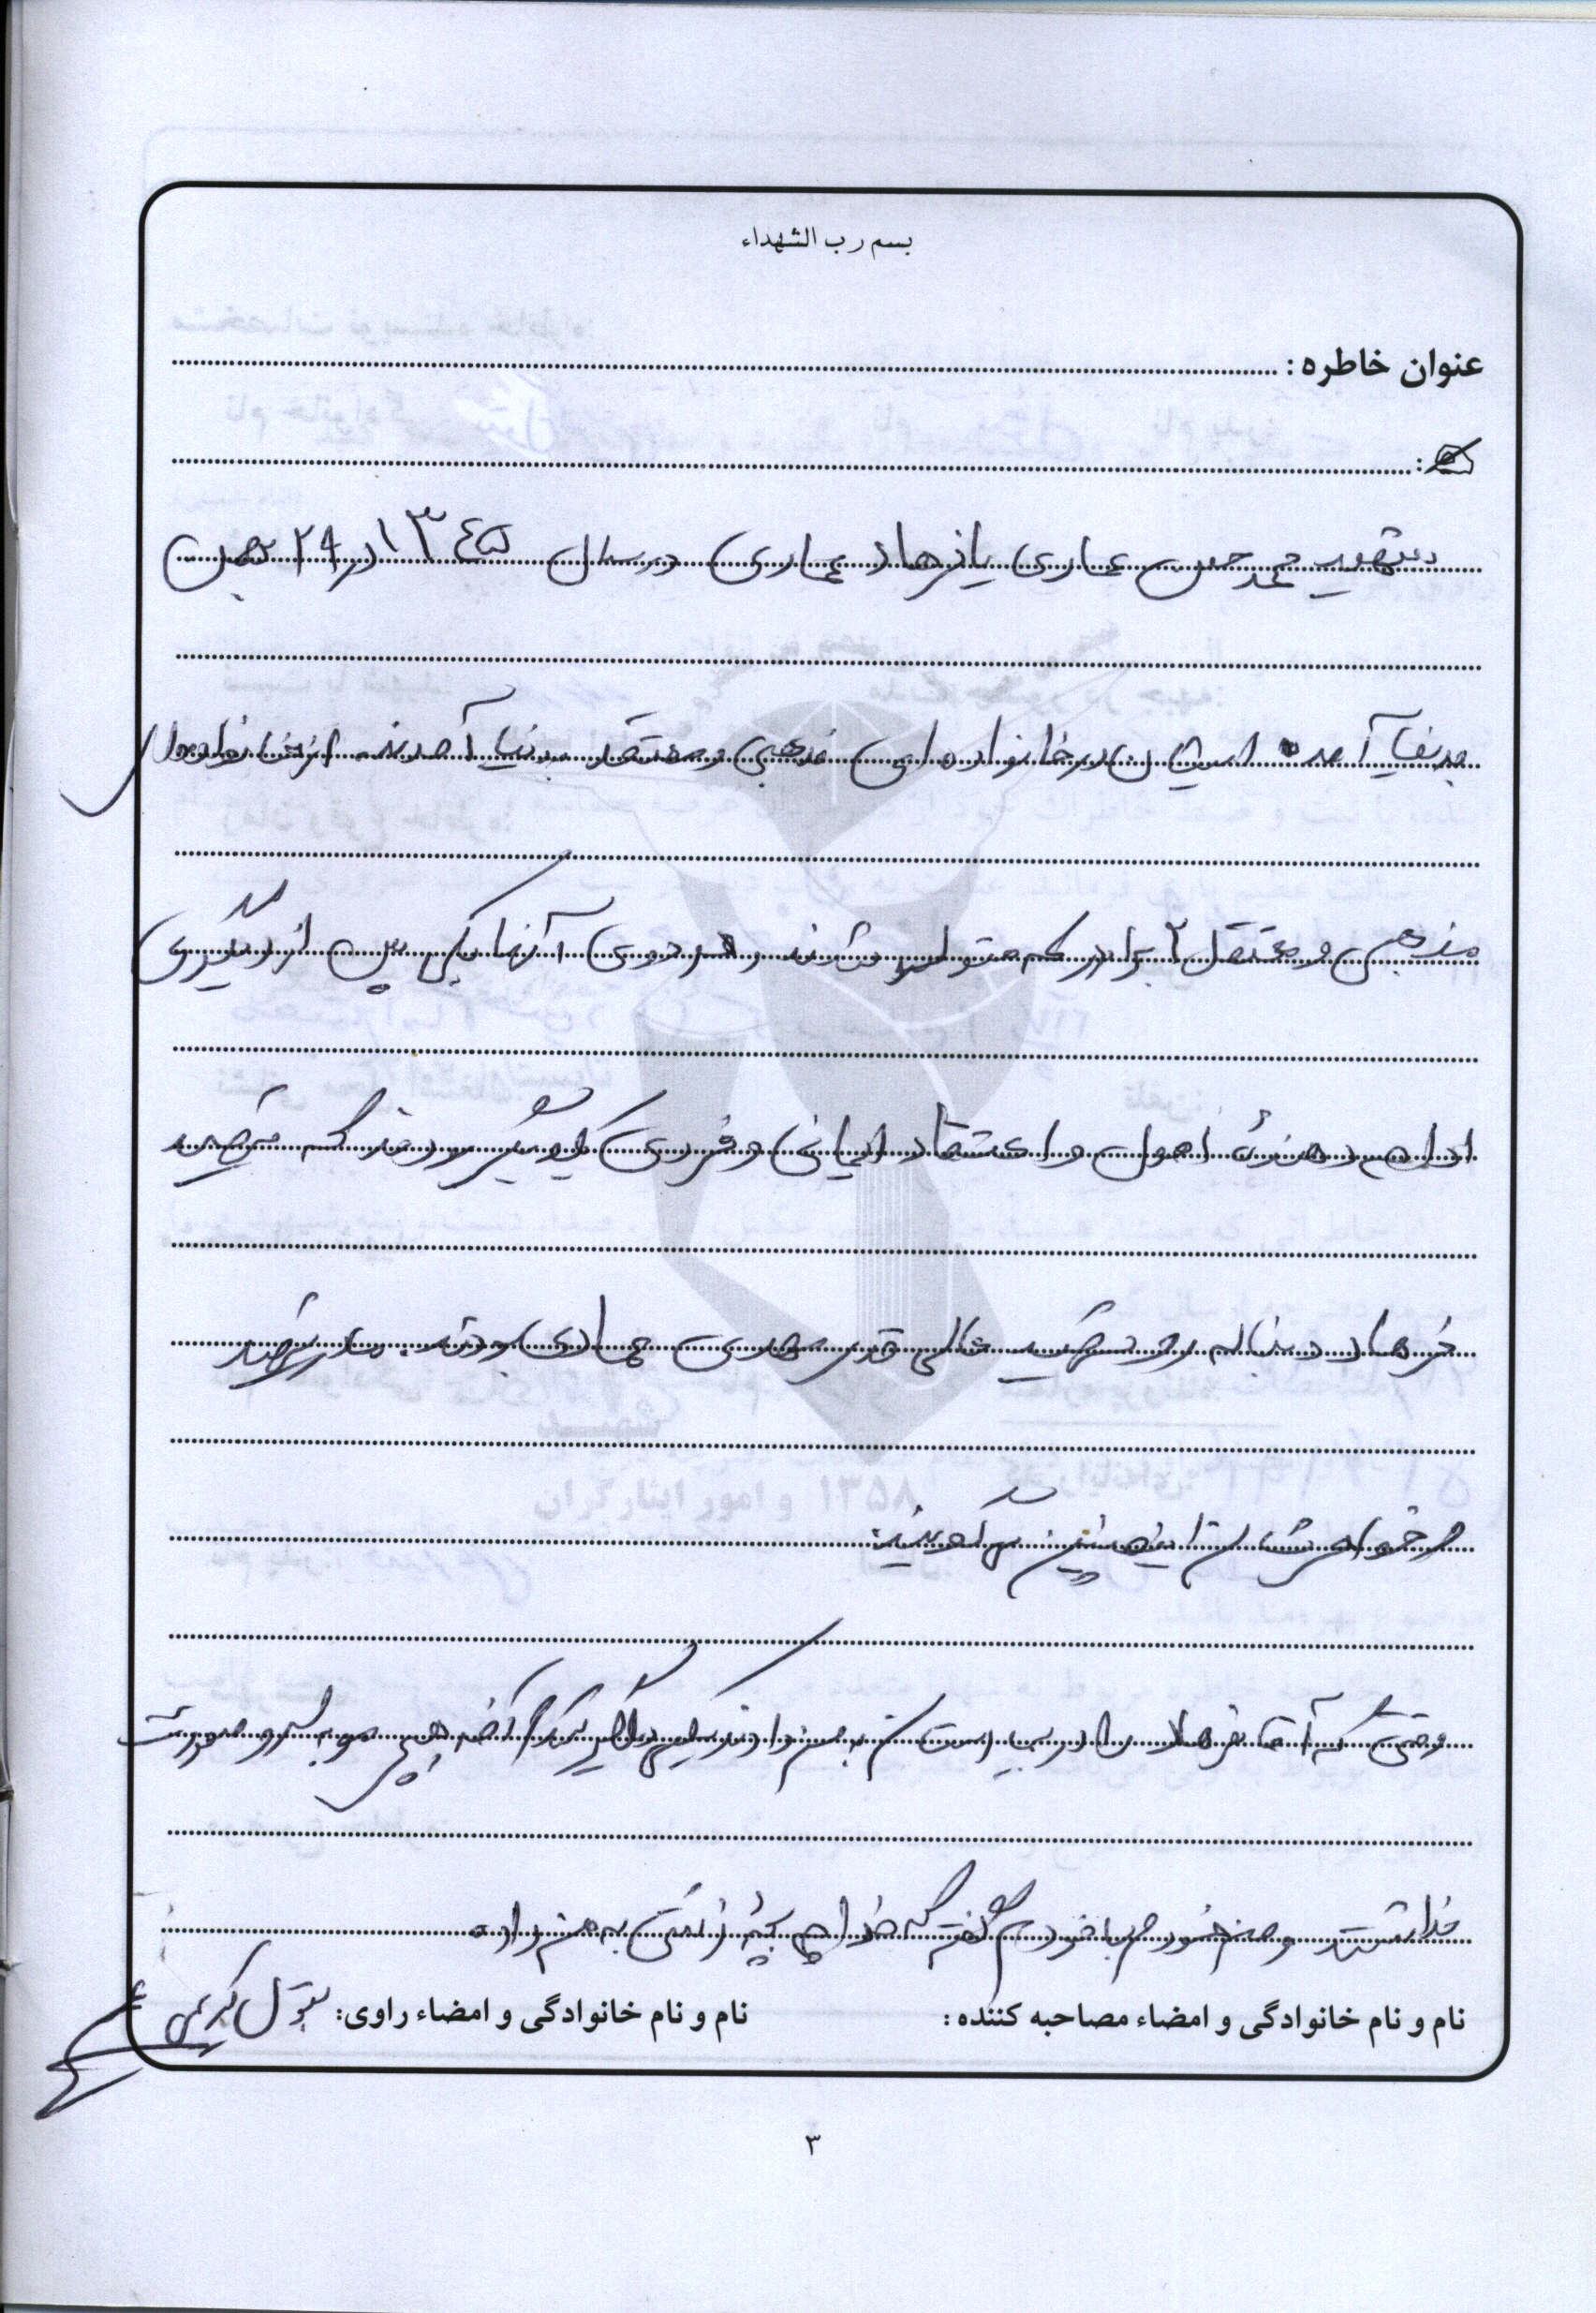 بسم رب الشهداء
عنوان خاطره :
شهید محمد حسن عماری یا فرهاد عماری در سال ۱۳۴۵ در ۲۹ بهمن
بدنیا آمد ایشان در خانواده ای مذهبی و معتقد بدنیا آمدند از خانواده
مذهبی و معتقد ۲ برادر که متولد شدند و هر دوی آنها یکی پس از دیگری
ادامه دهنده اصول و اعتقاد ایمانی و فردی که شهید
فرهاد دنباله رو شهید عالی قدر مهدی عمادی بودند. مادر شهید
و خواهرشان اینچنین میگویند:
وقتی که آقا فرهاد را در بیمارستان به من دادند هیچ مو به سر و صورت
نداشتند و من خودم با خودم گفتم که خدا چه بچه زشتی به من داده
نام و نام خانوادگی و امضاء مصاحبه کننده :
نام و نام خانوادگی و امضاء راوی: بتول کریمی
۳